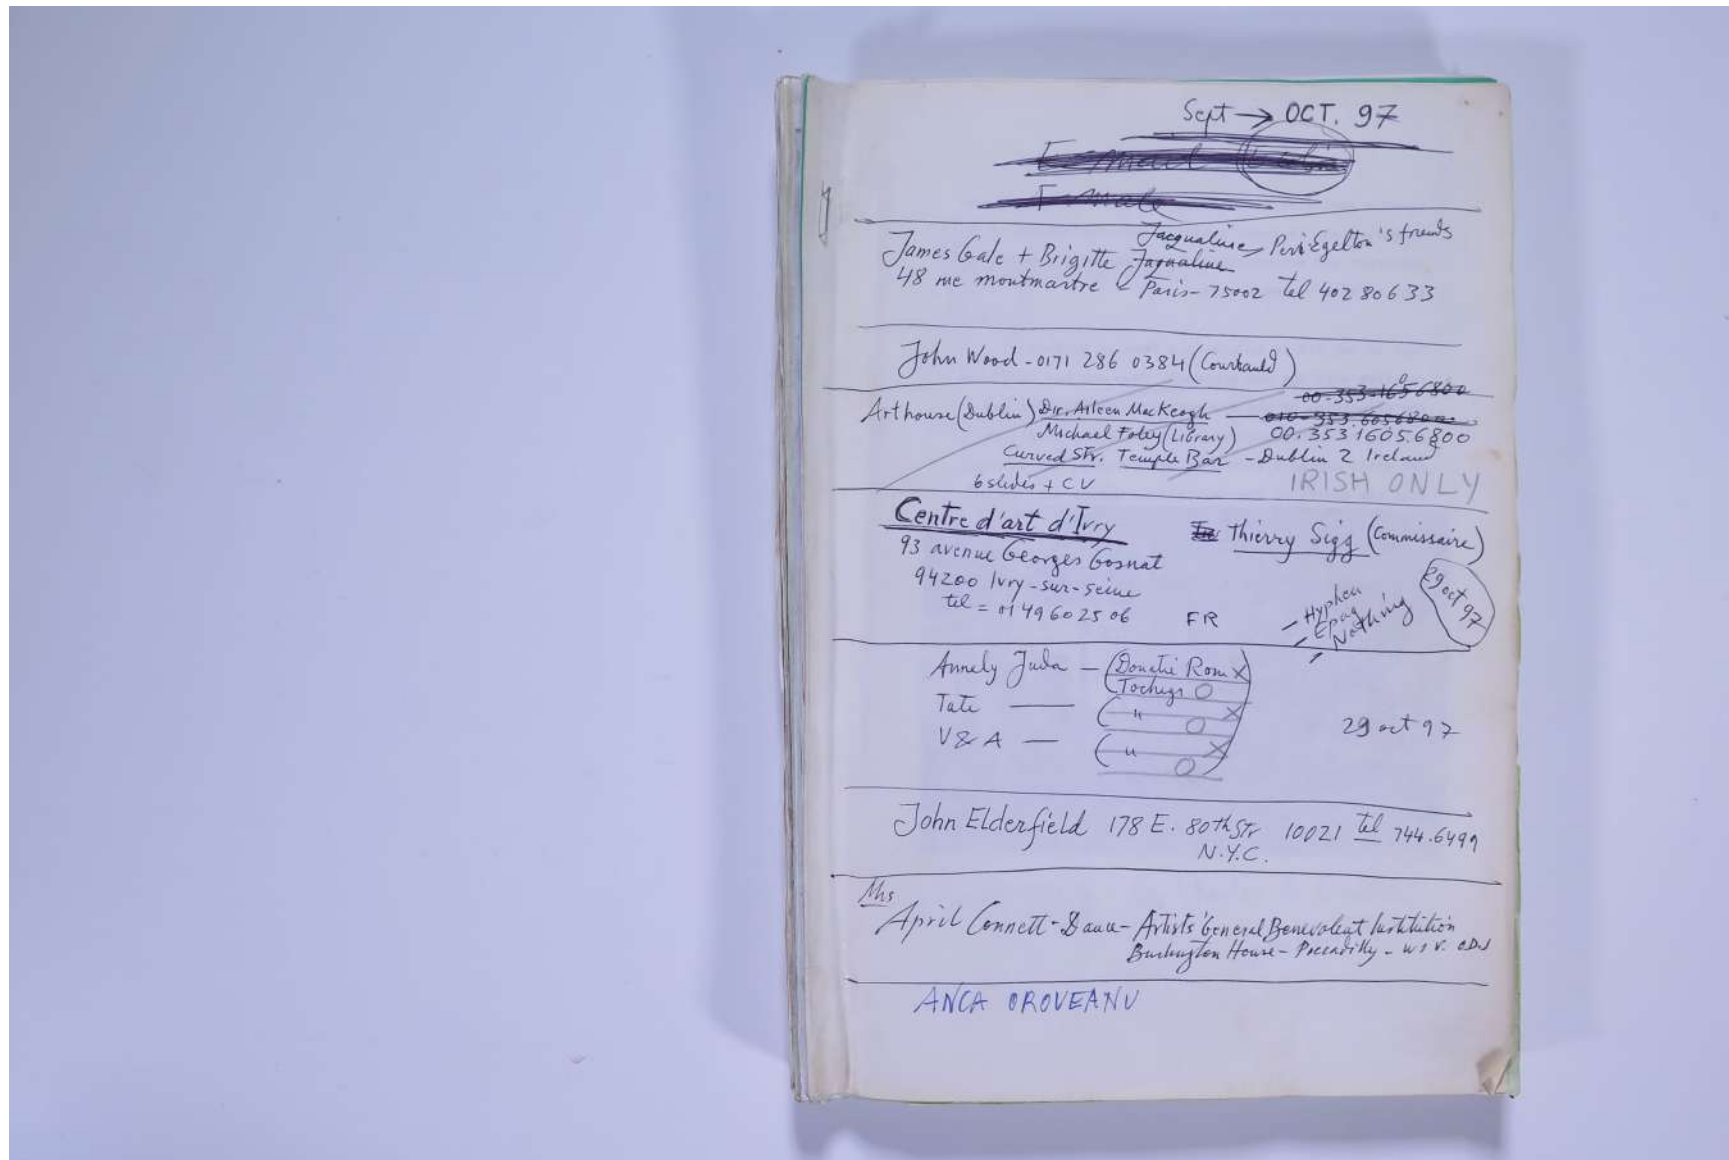 Sept → OCT. 97
E-mail
Female
Jacqualine → Peri Egelton's friends
James Gale + Brigitte Jaqualine
48 rue montmartre Paris - 75002 tel 402 80633
John Wood - 0171 286 0384 (Courtauld)
00-353-16056800
Arthouse (Dublin) Dir. Aileen MacKeogh — 010-353.6056800
Michael Foley (Library) 00.353 1605.6800
Curved Str. Temple Bar - Dublin 2 Ireland
6 slides + CV IRISH ONLY
Centre d'art d'Ivry Thierry Sigg (Commissaire)
93 avenue Georges Gosnat
94200 Ivry-sur-seine
tel = 01 49602506 FR
- Hyphen
- Epag
- Nothing
29 oct 97
Annely Juda — (Donatie Rom X
Tochigi O
Tate — ( " X
O
V & A — ( " X
O
29 oct 97
John Elderfield 178 E. 80th Str 10021 tel 744.6499
N.Y.C.
Mrs
April Connett-Dance - Artists' General Benevolent Institution
Burlington House - Piccadilly -
ANCA OROVEANU